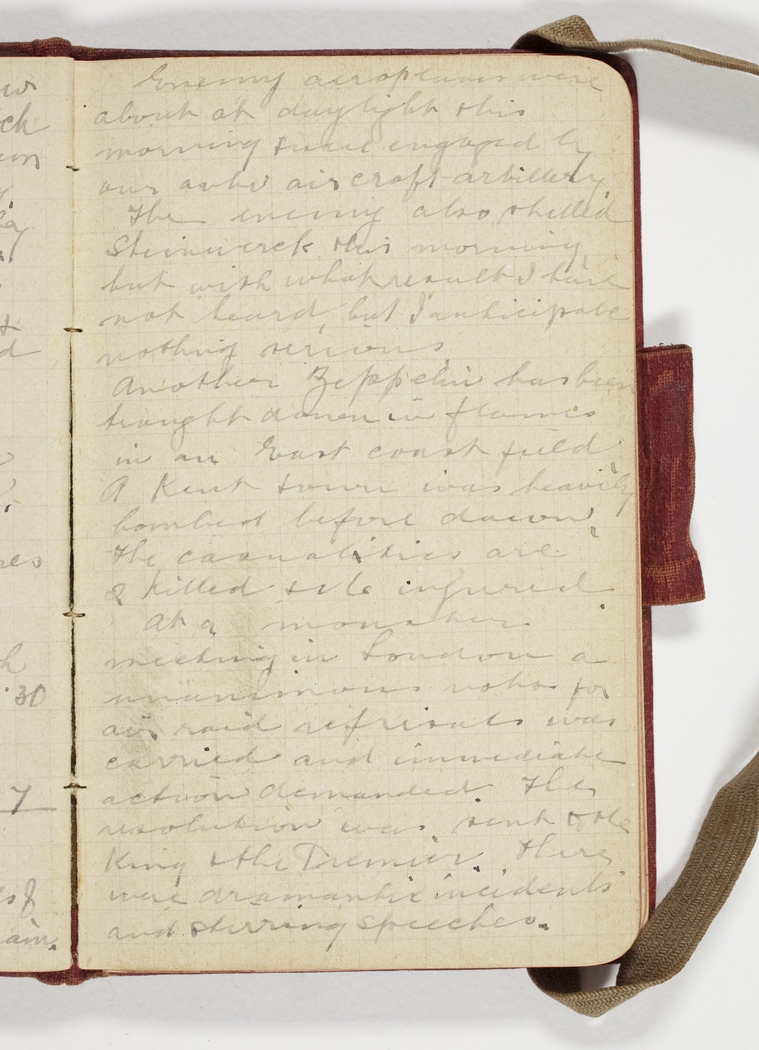 Enemy aeroplanes were
about at daylight this
morning & were engaged by
our anti aircraft artillery.
The enemy also shelled
Steinwerck this morning
but with what result I have
not heard but I anticipate
nothing serious
Another Zeppelin has been
brought down in flames
in an East coast field
A Kent town was heavily
bombed before dawn
the casualities are
2 killed & 16 injured.
At a monster
meeting in London a
unanimous vote for
air raid reprisals was
carried and immediate
action demanded The
resolution was sent to the
King & the Premier. There
were dramantic incidents
and stirring speeches.
30
7